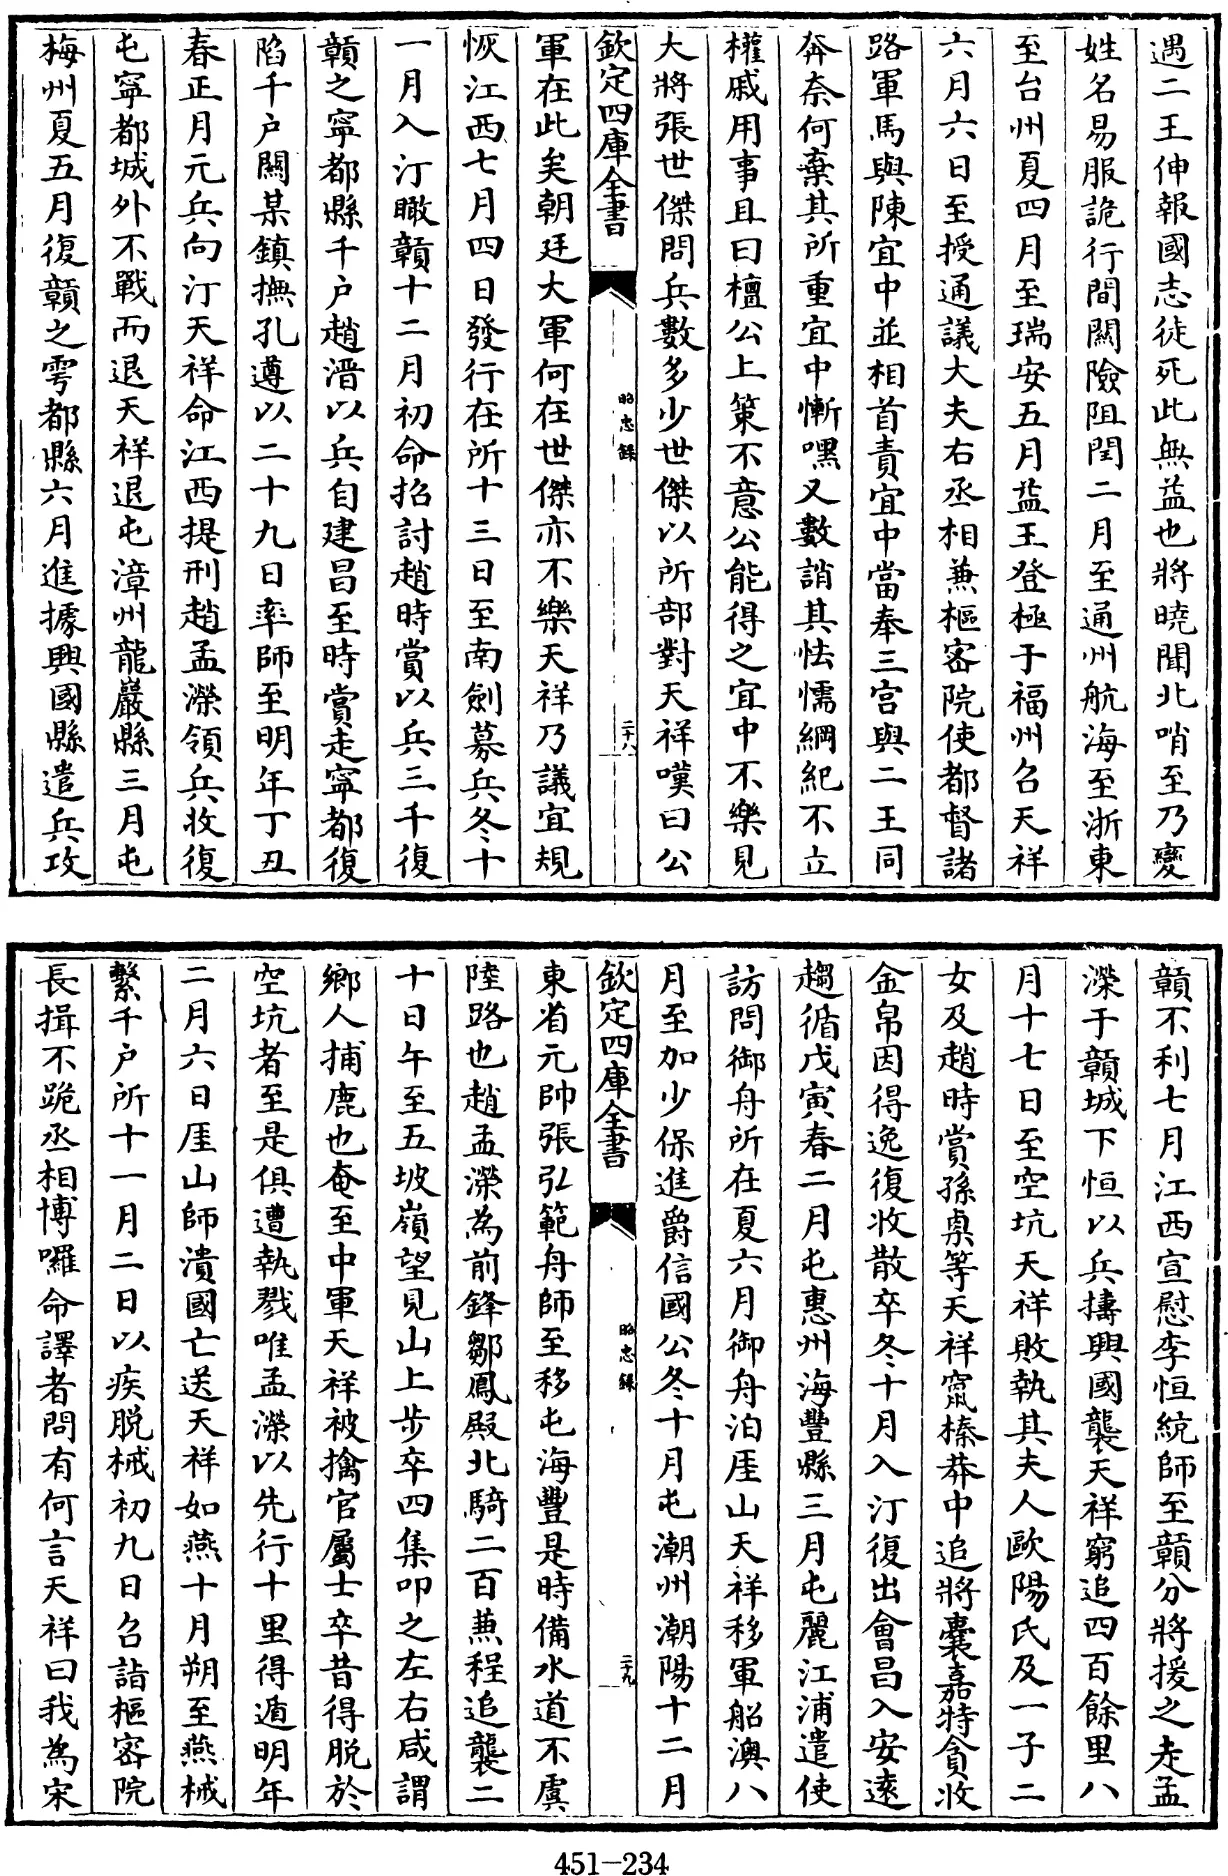 遇二王伸報國志徒死此無益也將曉聞北哨至乃變
姓名易服詭行間關險阻閏二月至通州航海至浙東
至台州夏四月至瑞安五月益王登極于福州召天祥
六月六日至授通議大夫右丞相兼樞密院使都督諸
路軍馬與陳宜中並相首責宜中當奉三宮與二王同
奔奈何棄其所重宜中慚嘿又數誚其怯懦綱紀不立
權戚用事且曰檀公上策不意公能得之宜中不樂見
大將張世傑問兵數多少世傑以所部對天祥嘆曰公
欽定四庫全書
昭忠錄
二十八
軍在此矣朝廷大軍何在世傑亦不樂天祥乃議宜規
恢江西七月四日發行在所十三日至南劍募兵冬十
一月入汀瞰贛十二月初命招討趙時賞以兵三千復
贛之寧都縣千户趙溍以兵自建昌至時賞走寧都復
陷千户關某鎮撫孔遵以二十九日率師至明年丁丑
春正月元兵向汀天祥命江西提刑趙孟濼領兵收復
屯寧都城外不戰而退天祥退屯漳州龍巖縣三月屯
梅州夏五月復贛之雩都縣六月進據興國縣遣兵攻
贛不利七月江西宣慰李恒統師至贛分將援之走孟
濼于贛城下恒以兵擣興國襲天祥窮追四百餘里八
月十七日至空坑天祥敗執其夫人歐陽氏及一子二
女及趙時賞孫㮚等天祥竄榛莽中追將囊嘉特貪收
金帛因得逸復收散卒冬十月入汀復出會昌入安遠
趨循戊寅春二月屯惠州海豐縣三月屯麗江浦遣使
訪問御舟所在夏六月御舟泊厓山天祥移軍船澳八
月至加少保進爵信國公冬十月屯潮州潮陽十二月
欽定四庫全書
昭忠錄
二十九
東省元帥張弘範舟師至移屯海豐是時備水道不虞
陸路也趙孟濼為前鋒鄒鳳殿北騎二百兼程追襲二
十日午至五坡嶺望見山上步卒四集叩之左右咸謂
鄉人捕鹿也奄至中軍天祥被擒官屬士卒昔得脱於
空坑者至是俱遭執戮唯孟濼以先行十里得遁明年
二月六日厓山師潰國亡送天祥如燕十月朔至燕械
繫千户所十一月二日以疾脱械初九日召詣樞密院
長揖不跪丞相博囉命譯者問有何言天祥曰我為宋
451-234